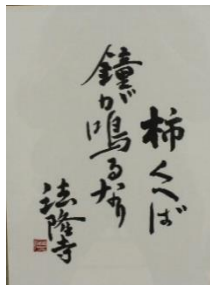 柿くへば
鐘が鳴るなり
法隆寺